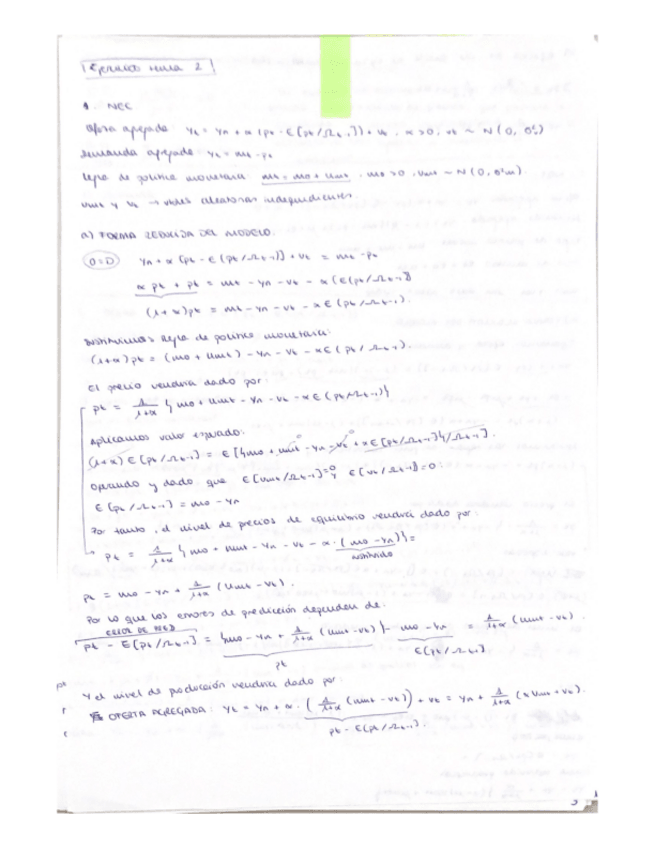 Ejercicio tema 2
1. NEC
Oferta agregada: yt = yn + α (pt - E[pt/Ωt-1]) + vt, α>0, vt ~ N(0, σ²)
Demanda agregada yt = mt - pt
Regla de política monetaria: mt = m0 + umt, m0>0, umt ~ N(0, σ²m).
umt y vt → vbles aleatorias independientes.
a) FORMA REDUCIDA DEL MODELO
O=D yn + α (pt - E[pt/Ωt-1]) + vt = mt - pt
α pt + pt = mt - yn - vt - α(E[pt/Ωt-1])
(1+α)pt = mt - yn - vt - αE(pt/Ωt-1).
Sustituimos regla de política monetaria:
(1+α)pt = (m0 + umt) - yn - vt - αE(pt/Ωt-1).
El precio vendría dado por:
pt = 1/1+α {m0 + umt - yn - vt - αE(pt/Ωt-1)}
Aplicamos valor esperado:
(1+α) E[pt/Ωt-1] = E[{m0 + umt - yn - vt + αE[pt/Ωt-1]}/Ωt-1].
operando y dado que E[umt/Ωt-1]=0 y E[vt/Ωt-1]=0:
E[pt/Ωt-1] = m0 - yn
Por tanto, el nivel de precios de equilibrio vendrá dado por:
pt = 1/1+α {m0 + umt - yn - vt - α·(m0 - yn)} =
pt = m0 - yn + 1/1+α (umt - vt).
Por lo que los errores de predicción dependen de:
pt - E[pt/Ωt-1] = {m0 - yn + 1/1+α (umt - vt)} - m0 - yn = 1/1+α (umt - vt).
pt E[pt/Ωt-1]
Y el nivel de producción vendría dado por:
OFERTA AGREGADA: yt = yn + α·(1/1+α (umt - vt)) + vt = yn + 1/1+α (αumt + vt).
pt - E[pt/Ωt-1].